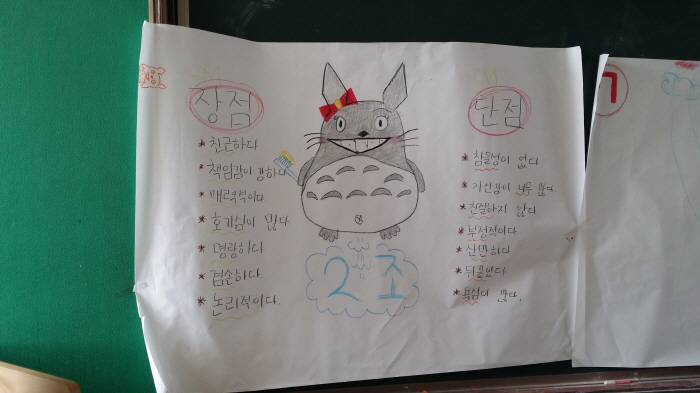 장점
* 친근하다
* 책임감이 강하다
* 매력적이다
* 호기심이 많다
* 명랑하다
* 겸손하다.
* 논리적이다.
2조
단점
* 참을성이 없다
* 자신감이 너무 많다
* 친절하지 않다
* 부정적이다
* 산만하다
* 뒤끝있다
* 욕심이 많다.